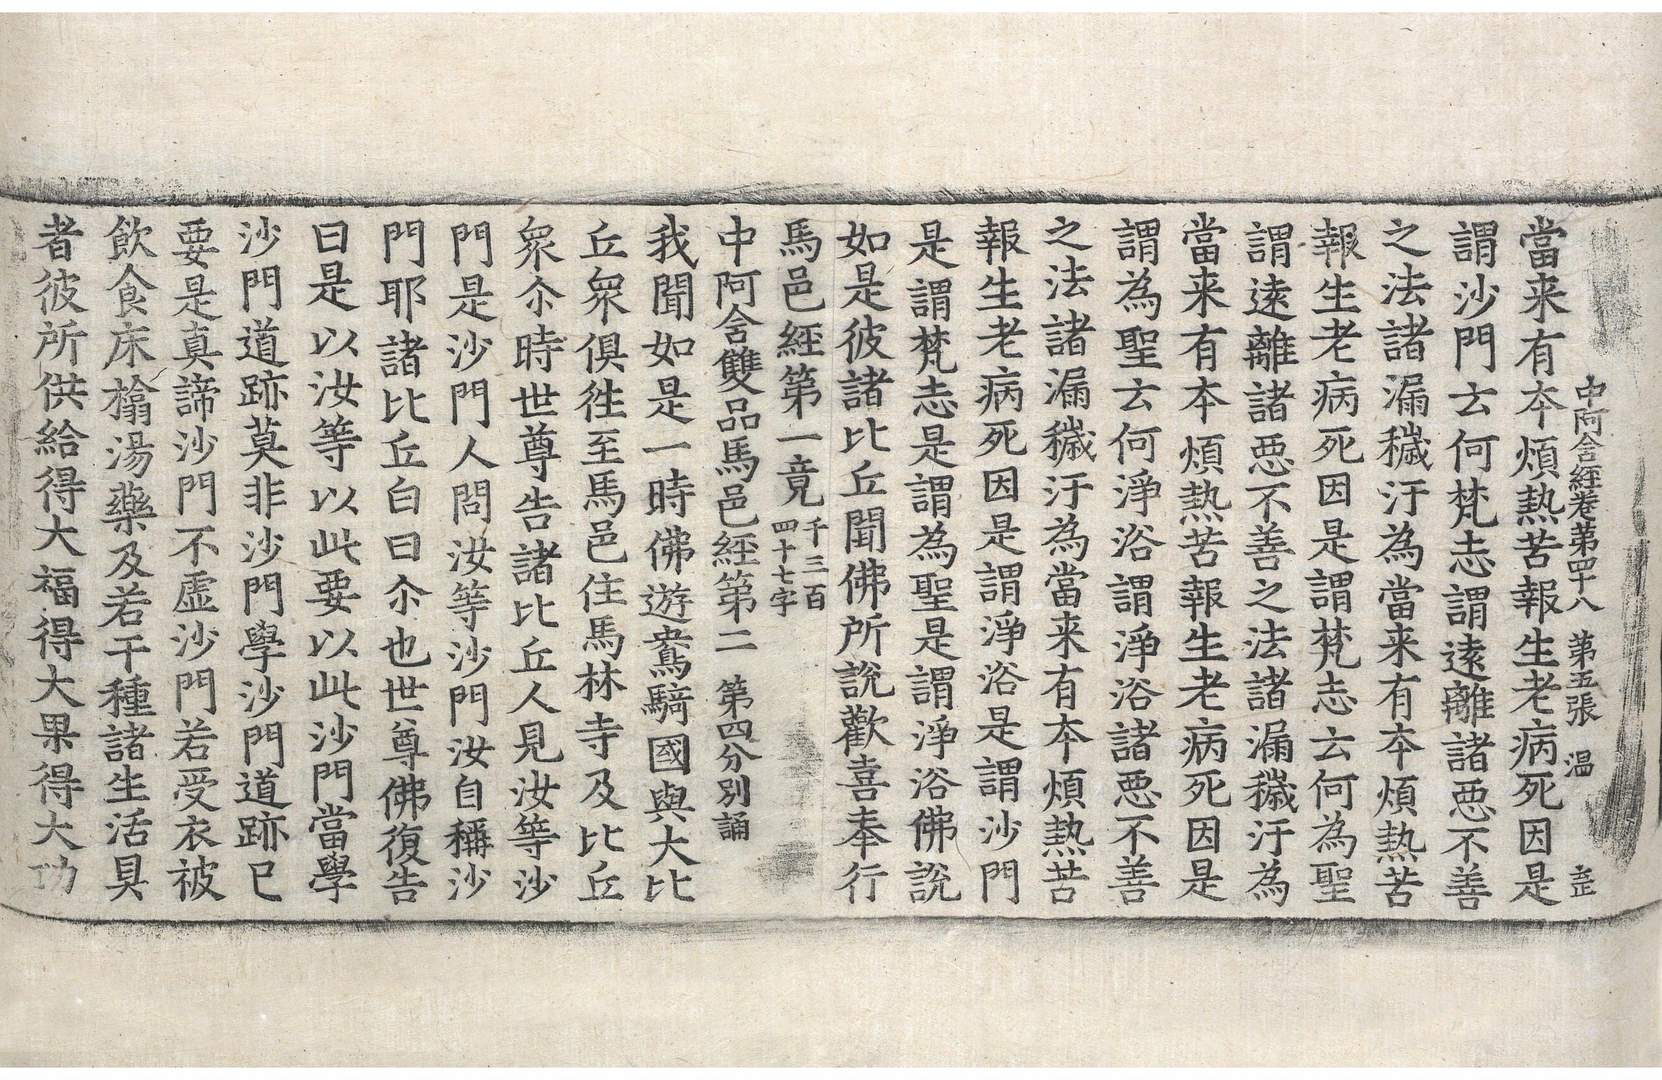 中阿含經卷第四十八 第五張 温
當来有夲煩熱苦報生老病死因是
謂沙門云何梵志謂逺離諸悪不善
之法諸漏穢汙為當来有夲煩熱苦
報生老病死因是謂梵志云何為聖
謂逺離諸悪不善之法諸漏穢汙為
當来有夲煩熱苦報生老病死因是
謂為聖云何淨浴謂淨浴諸悪不善
之法諸漏穢汙為當来有夲煩熱苦
報生老病死因是謂淨浴是謂沙門
是謂梵志是謂為聖是謂淨浴佛說
如是彼諸比丘聞佛所說歡喜奉行
馬邑經第一竟 千三百四十七字
中阿含雙品馬邑經第二 第四分別誦
我聞如是一時佛遊鴦騎國與大比
丘衆俱徃至馬邑住馬林寺及比丘
衆尒時世尊告諸比丘人見汝等沙
門是沙門人問汝等沙門汝自稱沙
門耶諸比丘白曰尒也世尊佛復告
曰是以汝等以此要以此沙門當學
沙門道跡莫非沙門學沙門道跡已
要是真諦沙門不虛沙門若受衣被
飲食床榻湯藥及若干種諸生活具
者彼所供給得大福得大果得大功